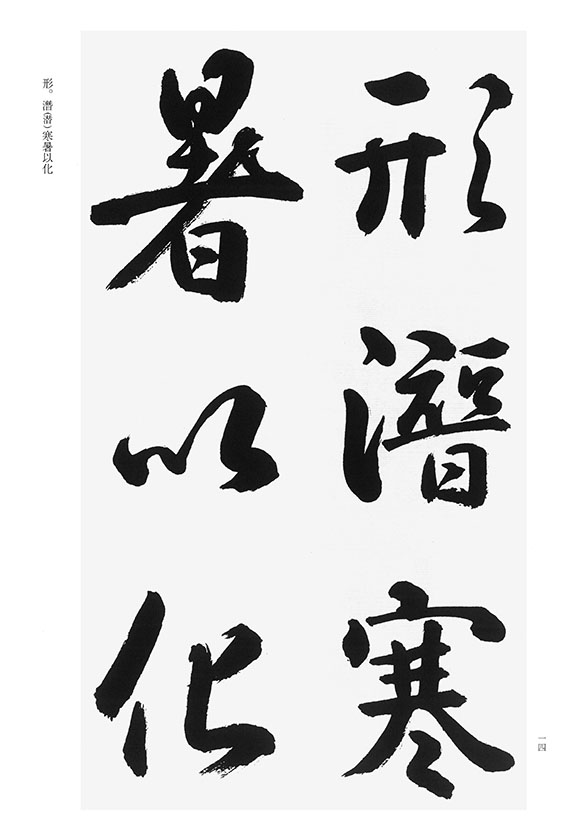 形潛寒
暑以化
形。潛(潜)寒暑以化
一四